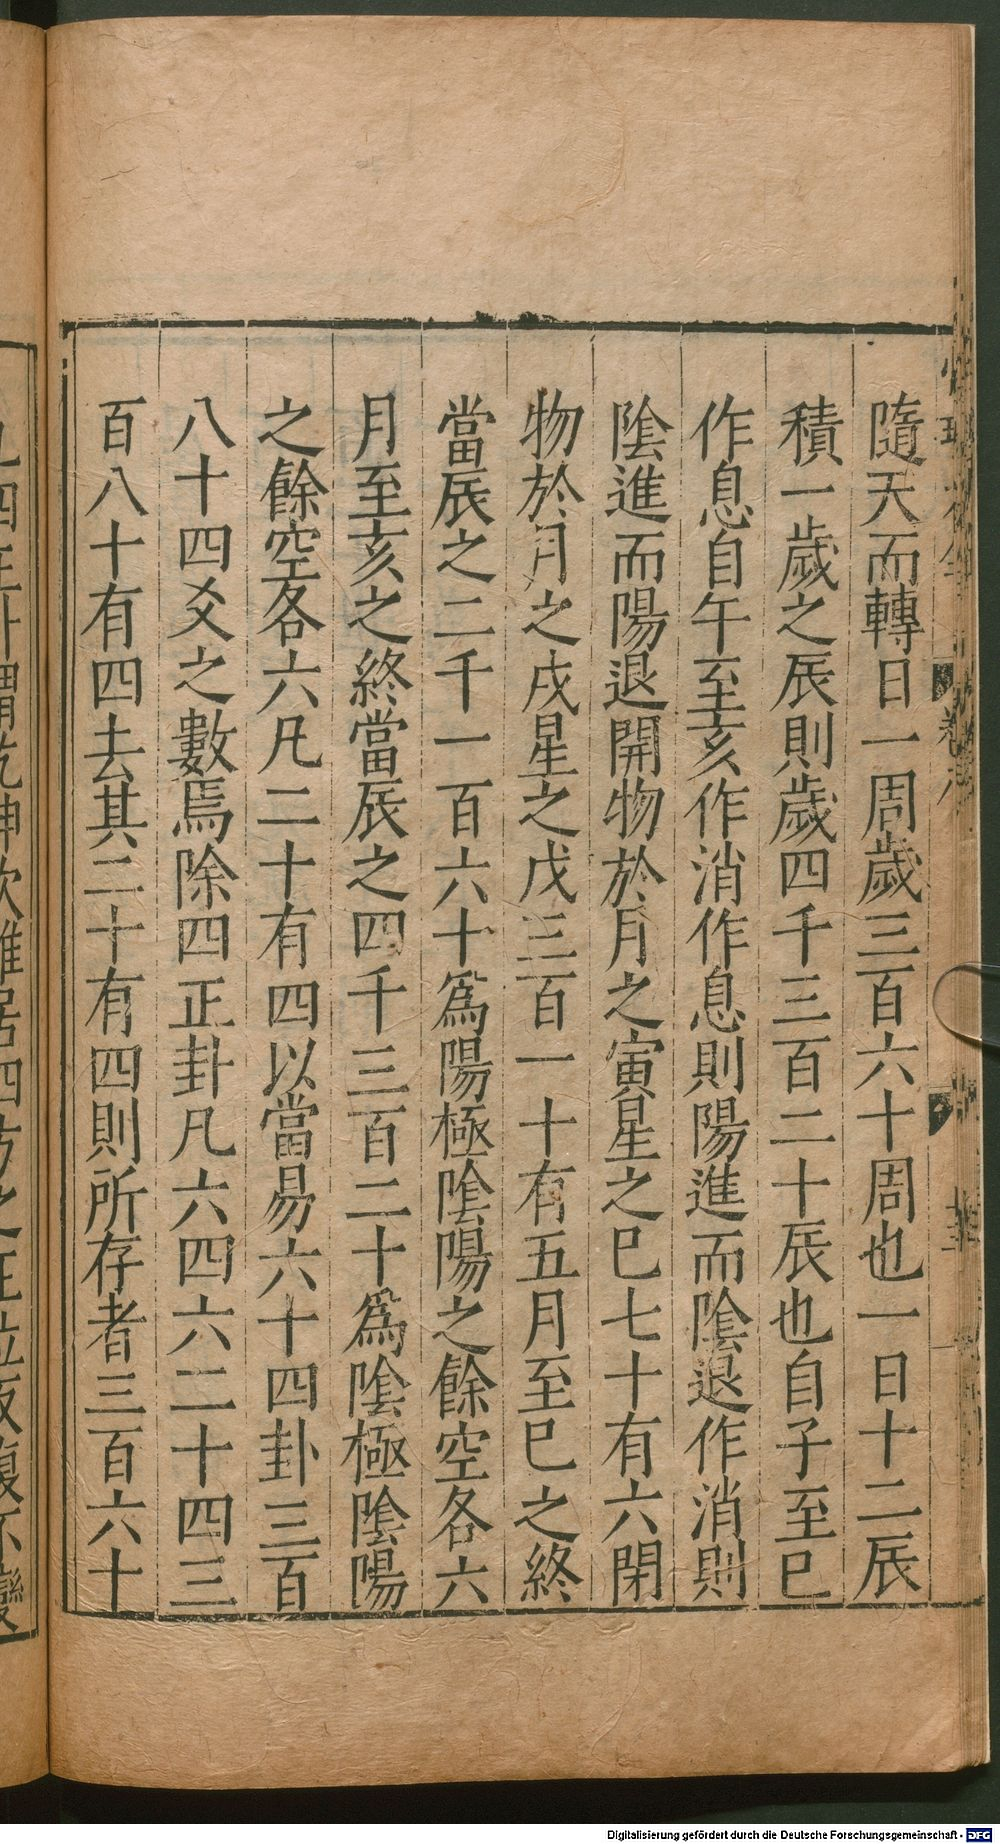 隨天而轉日一周歲三百六十周也一日十二辰
積一歲之辰則歲四千三百二十辰也自子至巳
作息自午至亥作消作息則陽進而陰退作消則
陰進而陽退開物於月之寅星之巳七十有六閉
物於月之戌星之戊三百一十有五月至巳之終
當辰之二千一百六十爲陽極陰陽之餘空各六
月至亥之終當辰之四千三百二十爲陰極陰陽
之餘空各六凡二十有四以當易六十四卦三百
八十四爻之數焉除四正卦凡六四六二十四三
百八十有四去其二十有四則所存者三百六十
Digitalisierung gefördert durch die Deutsche Forschungsgemeinschaft - DFG